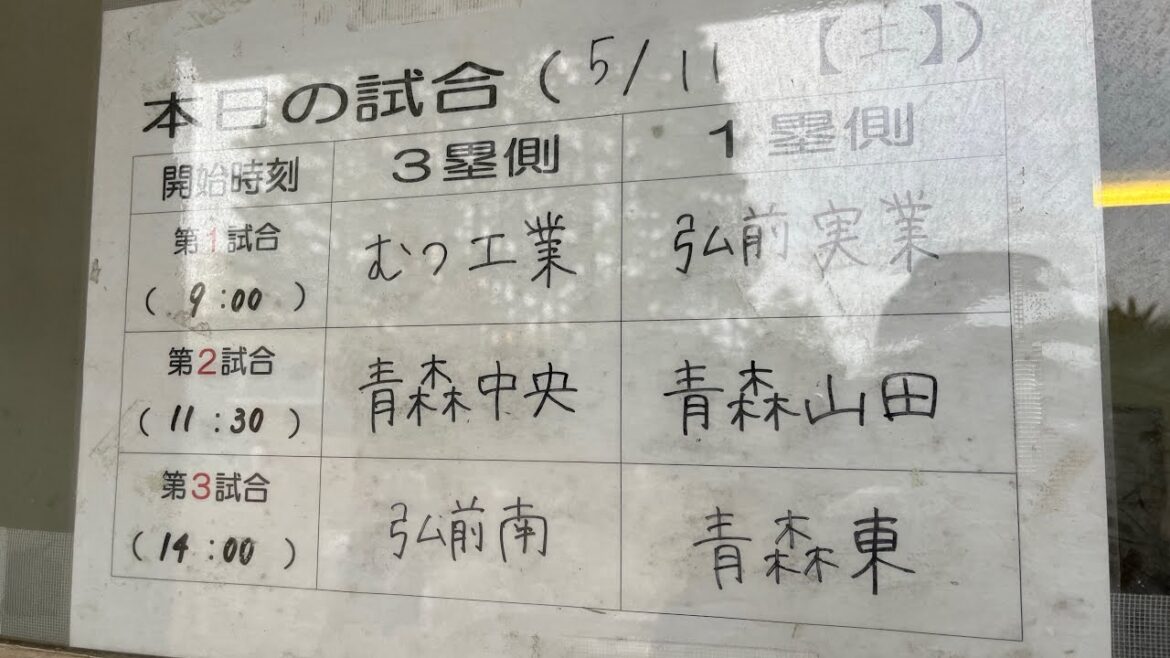 本日の試合(5/11【土】)
開始時刻 3塁側 1塁側
第1試合
(9:00) むつ工業 弘前実業
第2試合
(11:30) 青森中央 青森山田
第3試合
(14:00) 弘前南 青森東